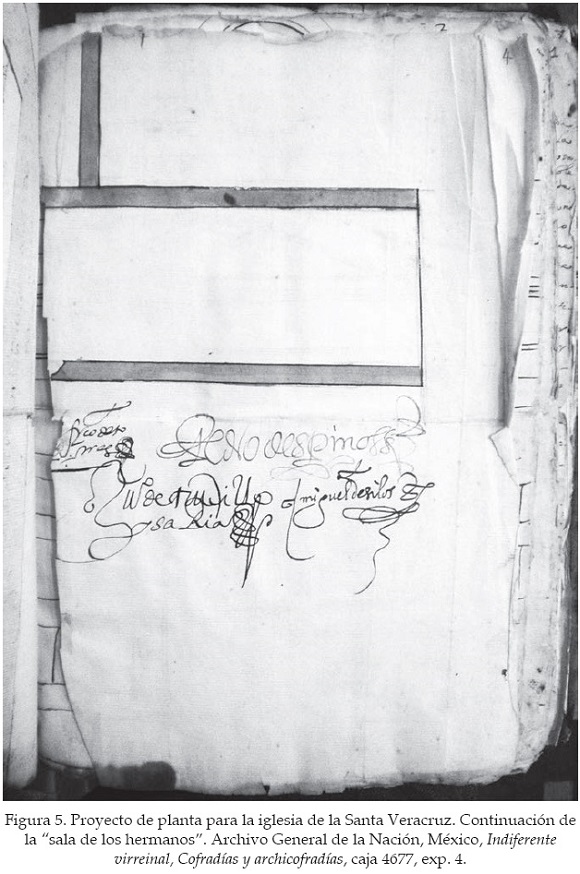 2
4
Pedro despinosa
miguel desilos
saRia
Figura 5. Proyecto de planta para la iglesia de la Santa Veracruz. Continuación de
la “sala de los hermanos”. Archivo General de la Nación, México, Indiferente
virreinal, Cofradías y archicofradías, caja 4677, exp. 4.